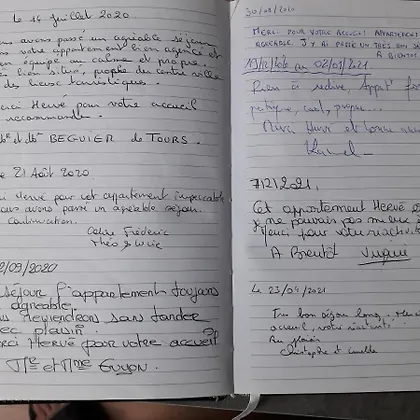 Le 14 juillet 2020
avons passé un agréable séjour
votre appartement bien agencé et
équipé au calme et propre.
bien situé, proche du centre ville
des lieux touristiques.
Hervé pour votre accueil
recommande.
BEGUIER de TOURS.
21 Août 2020.
Hervé pour cet appartement impeccable
avons passé un agréable séjour.
Continuation.
Célia Frédéric
Théo & Lucie
/09/2020
séjour l'appartement toujours
agréable.
Reviendrons sans tarder
plaisir.
Hervé pour votre accueil
et Mme Guyon.
30/08/2020
MERCI POUR VOTRE ACCUEIL APPARTEMENT
AGREABLE. J'Y AI PASSÉ UN TRES BON
A BIENTOT
19/12/2020 au 02/01/2021
Rien à redire, Appt
pratique, cool, propre...
Merci Hervé et bonne
7/2/2021.
Cet appartement Hervé
je ne pouvais pas mieux
Merci pour votre
A Bientôt
Le 23/04/2021
Très bon séjour
accueil, votre
Au plaisir
Christophe et Camille